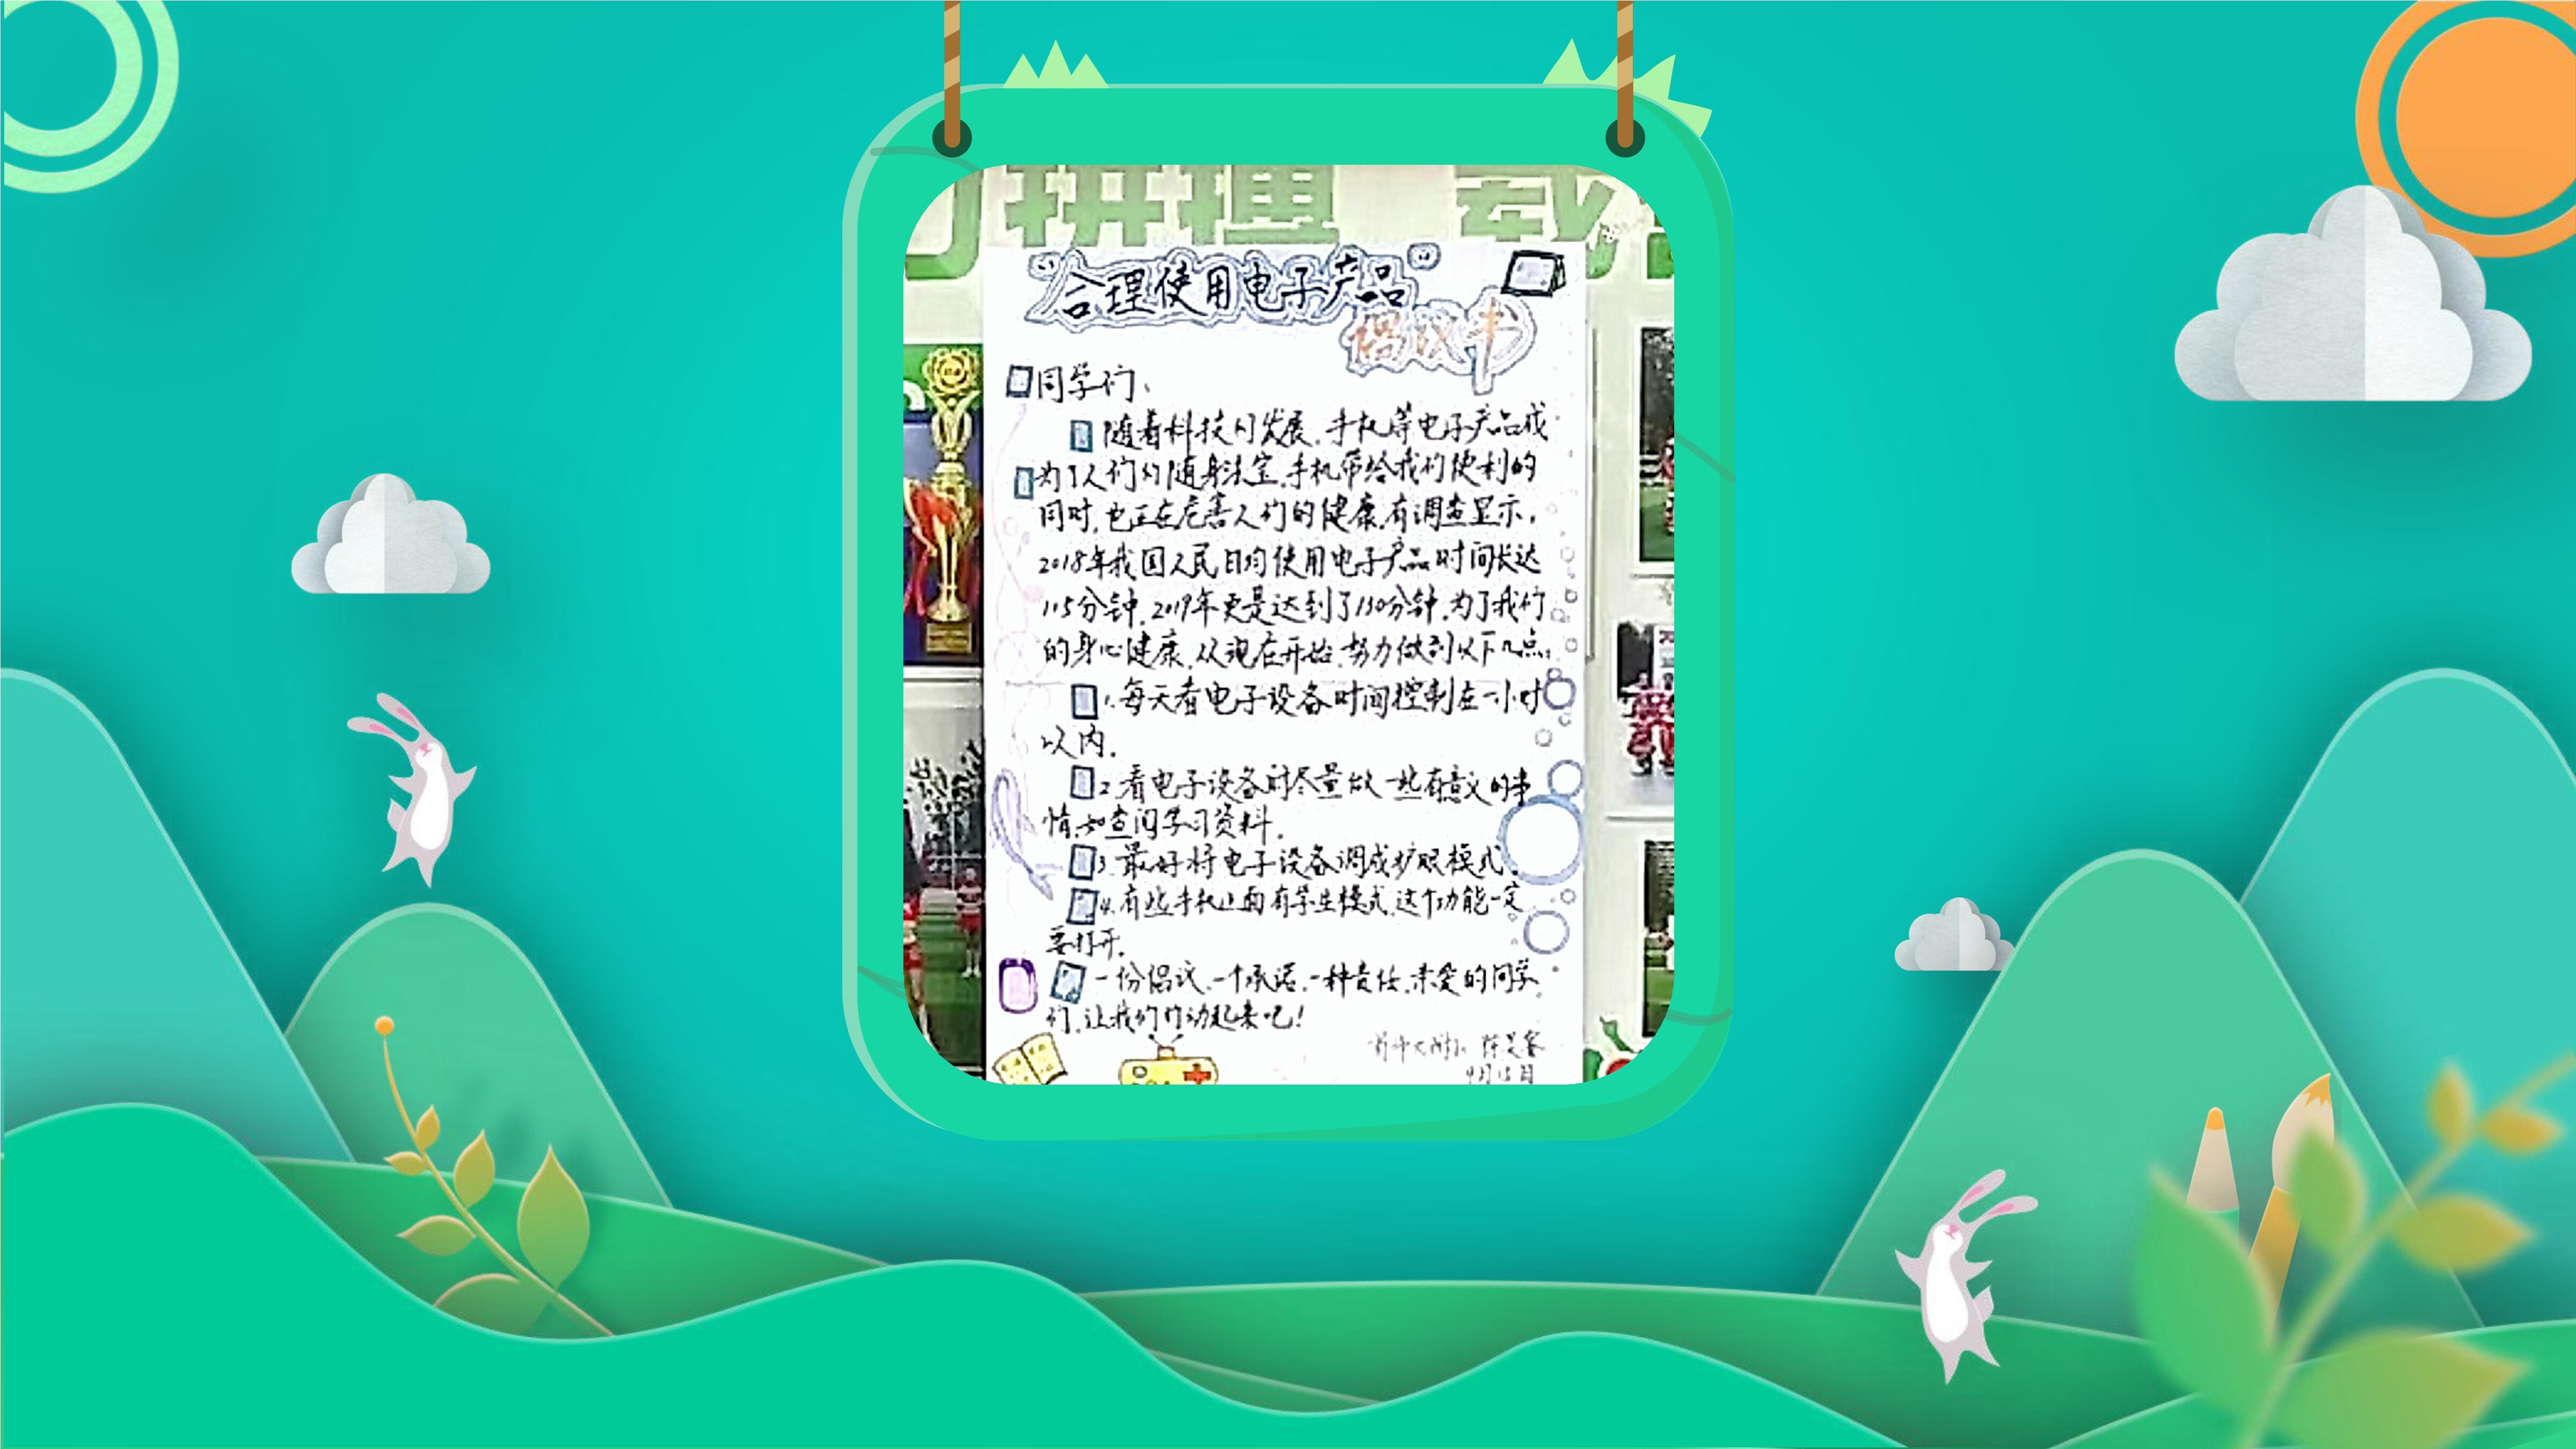 拼搏
"合理使用电子产品"
倡议书
同学们、
随着科技的发展，手机等电子产品成
为了人们的随身法宝，手机带给我们便利的
同时，也正在危害人们的健康，有调查显示，
2018年我国人民日均使用电子产品时间长达
115分钟，2019年更是达到了130分钟，为了我们
的身心健康，从现在开始，努力做到以下几点：
1.每天看电子设备时间控制在一小时
以内.
2.看电子设备时尽量做一些有意义的事
情，如查阅学习资料.
3.最好将电子设备调成护眼模式.
4.有些手机上面有学生模式，这个功能一定
要打开.
一份倡议，一个承诺，一种责任，亲爱的同学
们，让我们行动起来吧！